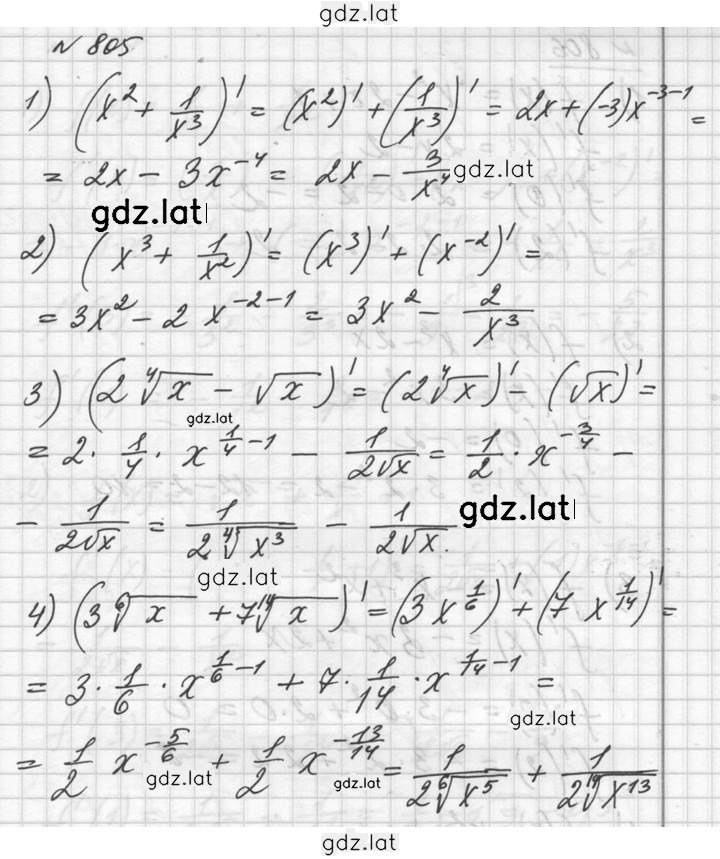 gdz.lat
№ 805
1) (x² + 1/x³)' = (x²)' + (1/x³)' = 2x + (-3)x⁻³⁻¹ =
= 2x - 3x⁻⁴ = 2x - 3/x⁴ gdz.lat
gdz.lat
2) (x³ + 1/x²)' = (x³)' + (x⁻²)' =
= 3x² - 2 x⁻²⁻¹ = 3x² - 2/x³
3) (2⁴√x - √x)' = (2⁴√x)' - (√x)' =
gdz.lat
= 2 · 1/4 · x^(1/4 - 1) - 1/(2√x) = 1/2 · x^(-3/4) -
- 1/(2√x) = 1/(2⁴√x³) - 1/(2√x). gdz.lat
gdz.lat
4) (3⁶√x + 7¹⁴√x)' = (3x^(1/6))' + (7x^(1/14))' =
= 3 · 1/6 · x^(1/6 - 1) + 7 · 1/14 · x^(1/14 - 1) =
gdz.lat
= 1/2 x^(-5/6) + 1/2 x^(-13/14) = 1/(2⁶√x⁵) + 1/(2¹⁴√x¹³)
gdz.lat gdz.lat
gdz.lat